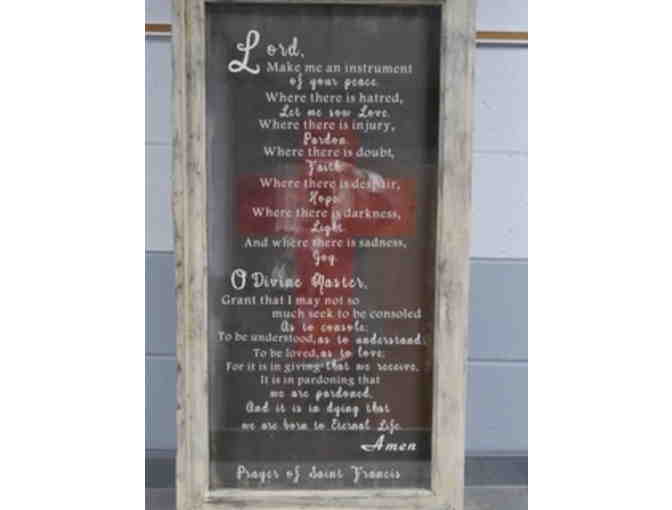 Lord,
Make me an instrument
of your peace.
Where there is hatred,
Let me sow Love.
Where there is injury,
Pardon.
Where there is doubt,
Faith
Where there is despair,
Hope.
Where there is darkness,
Light.
And where there is sadness,
Joy.
O Divine Master,
Grant that I may not so
much seek to be consoled
As to console;
To be understood, as to understand;
To be loved, as to love;
For it is in giving that we receive,
It is in pardoning that
we are pardoned,
And it is in dying that
we are born to Eternal Life.
Amen
Prayer of Saint Francis